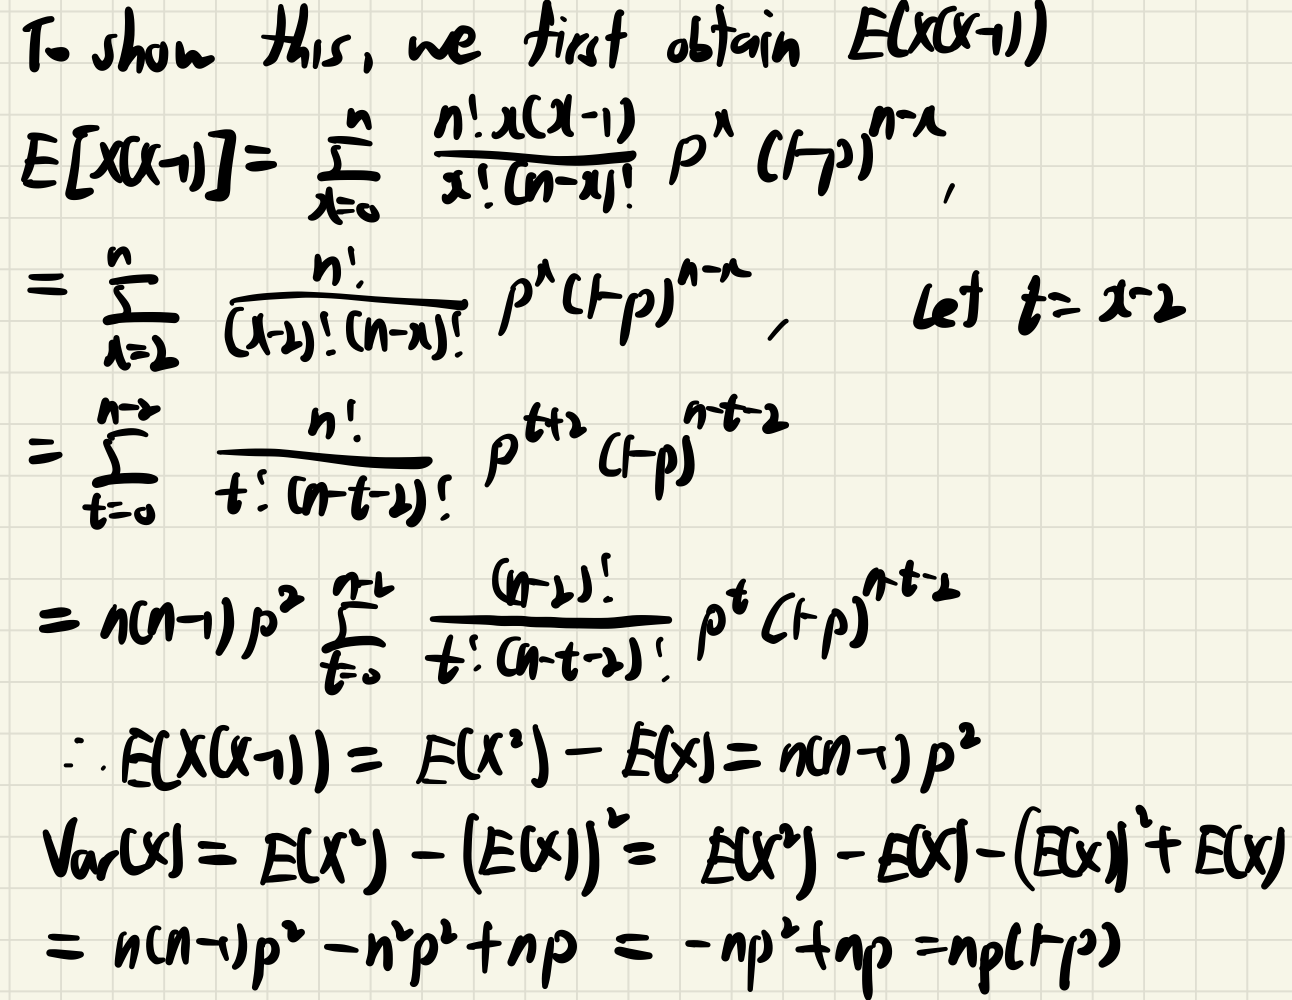 To show this, we first obtain E(X(X-1))
E[X(X-1)] = \sum_{x=0}^{n} \frac{n! x(x-1)}{x!(n-x)!} p^x (1-p)^{n-x},
= \sum_{x=2}^{n} \frac{n!}{(x-2)!(n-x)!} p^x (1-p)^{n-x}, let t = x-2
= \sum_{t=0}^{n-2} \frac{n!}{t!(n-t-2)!} p^{t+2} (1-p)^{n-t-2}
= n(n-1)p^2 \sum_{t=0}^{n-2} \frac{(n-2)!}{t!(n-t-2)!} p^t (1-p)^{n-t-2}
∴ E(X(X-1)) = E(X^2) - E(X) = n(n-1)p^2
Var(X) = E(X^2) - (E(X))^2 = E(X^2) - E(X) - (E(X))^2 + E(X)
= n(n-1)p^2 - n^2p^2 + np = -np^2 + np = np(1-p)